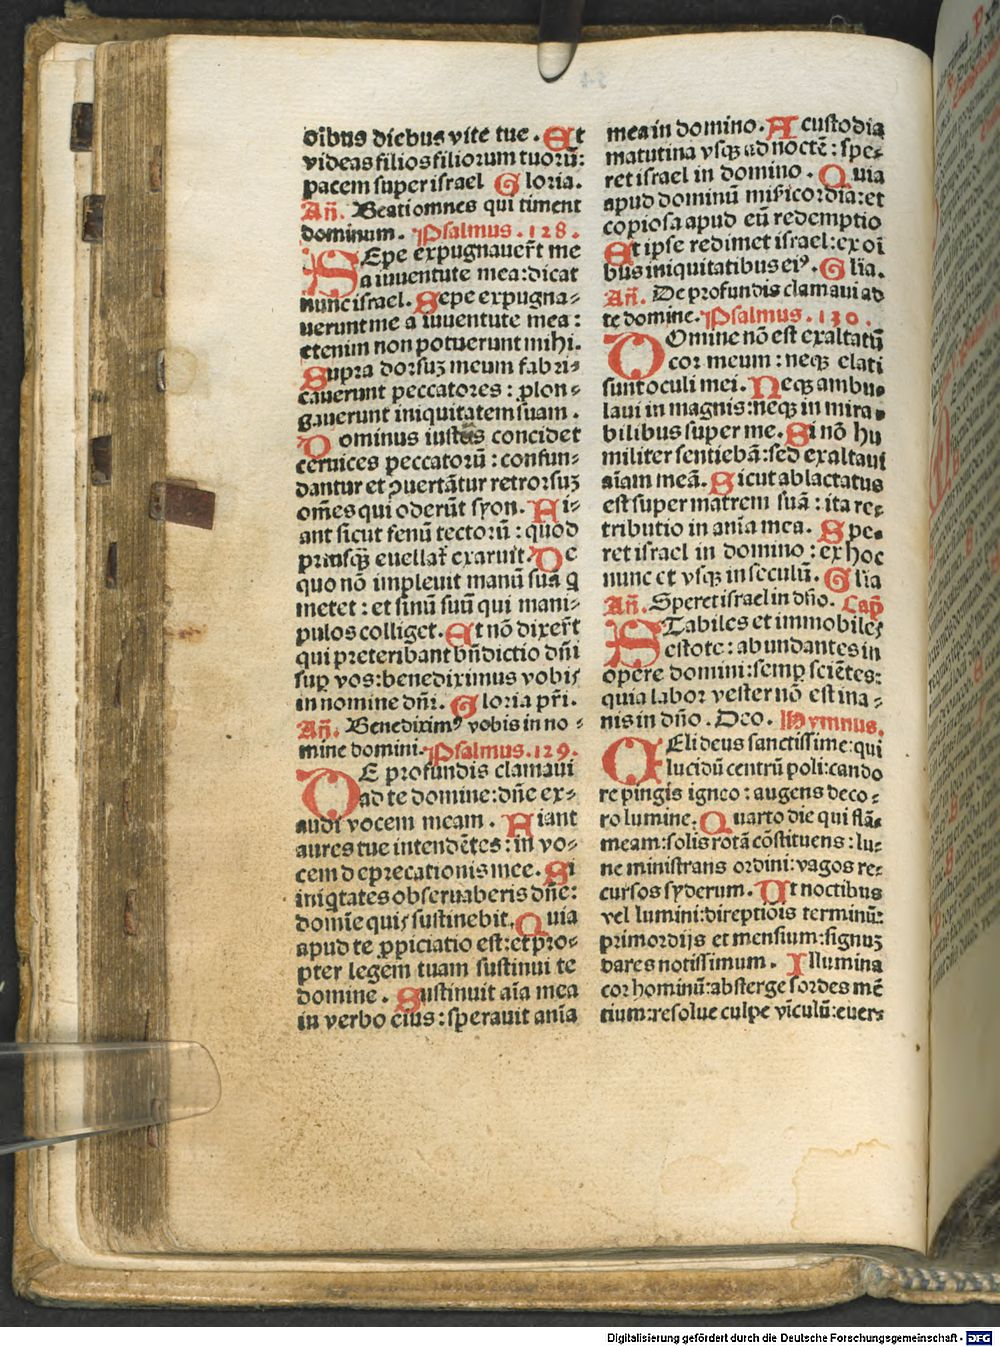 oîbus diebus vite tue . Et
videas filios filiorum tuorū:
pacem super israel Gloria.
Añ. Beati omnes qui timent
dominum. Psalmus . 128 .
SEpe expugnauer̄t me
a iuuentute mea: dicat
nunc israel. Sepe expugna-
uerunt me a iuuentute mea :
etenim non potuerunt mihi.
Supra dorsuꝫ meum fabri-
cauerunt peccatores : ꝓlon-
gauerunt iniquitatem suam .
Dominus iustus concidet
ceruices peccatorū : confun-
dantur et ꝯuertātur retrorsuꝫ
om̄es qui oderūt syon. Fi-
ant sicut fenū tectorū : quod
priusqꝫ euellat̄ exaruit. De
quo nō impleuit manū suā q
metet : et sinū suū qui mani-
pulos colliget. Et nō dixer̄t
qui preteribant bn̄dictio dn̄i
suꝑ vos: benediximus vobis
in nomine dn̄i. Gloria pr̄i.
Añ. Benediximꝰ vobis in no-
mine domini. Psalmus. 129.
DE profundis clamaui
ad te domine: dn̄e ex-
audi vocem meam . Fiant
aures tue intendētes : in vo-
cem deprecationis mee. Si
iniq̇tates obseruaberis dn̄e:
domīe quis sustinebit. Quia
apud te ꝓpiciatio est: et pro-
pter legem tuam sustinui te
domine . Sustinuit aīa mea
in verbo eius : sperauit aīa
mea in domino. A custodia
matutina vsqꝫ ad noctē : spe-
ret israel in domino . Quia
apud dominū mīsicordia: et
copiosa apud eū redemptio
Et ipse redimet israel: ex oī
bus iniquitatibus eiꝰ. Glīa.
Añ. De profundis clamaui ad
te domine. Psalmus . 130 .
DOmine nō est exaltatū
cor meum : neqꝫ elati
sunt oculi mei . Neqꝫ ambu-
laui in magnis: neqꝫ in mira-
bilibus super me. Si nō hu
militer sentiebā: sed exaltaui
aīam meā. Sicut ablactatus
est super matrem suā : ita re-
tributio in anīa mea. Spe-
ret israel in domino : ex hoc
nunc et vsqꝫ in seculū. Glīa
Añ. Speret israel in dn̄o. Cap̄
STabiles et immobiles
estote : abundantes in
opere domini: semꝑ sciētes:
quia labor vester nō est ina-
nis in dn̄o . Deo. Hymnus.
CEli deus sanctissime: qui
lucidū centrū poli: cando
re pingis igneo : augens deco-
ro lumine. Quarto die qui flā-
meam: solis rotā cōstituens : lu-
ne ministrans ordini: vagos re-
cursos syderum. Ut noctibus
vel lumini: direptiōis terminū:
primordijs et mensium: signuꝫ
dares notissimum . Illumina
cor hominū: absterge sordes mē
tium: resolue culpe vīculū: euer-
Digitalisierung gefördert durch die Deutsche Forschungsgemeinschaft - DFG